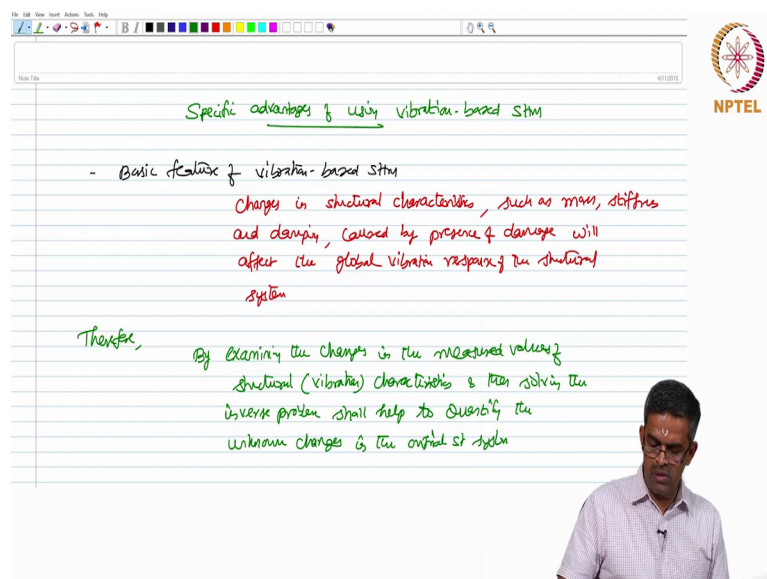 File Edit View Insert Actions Tools Help
B I
Note Title
4/11/2018
NPTEL
Specific advantages of using vibration-based SHM
- Basic feature of vibration-based SHM
Changes in structural characteristics, such as mass, stiffness
and damping, caused by presence of damage will
affect the global vibration response of the structural
system
Therefore,
By examining the changes in the measured values of
structural (vibration) characteristics & then solving the
inverse problem shall help to Quantify the
unknown changes in the st system